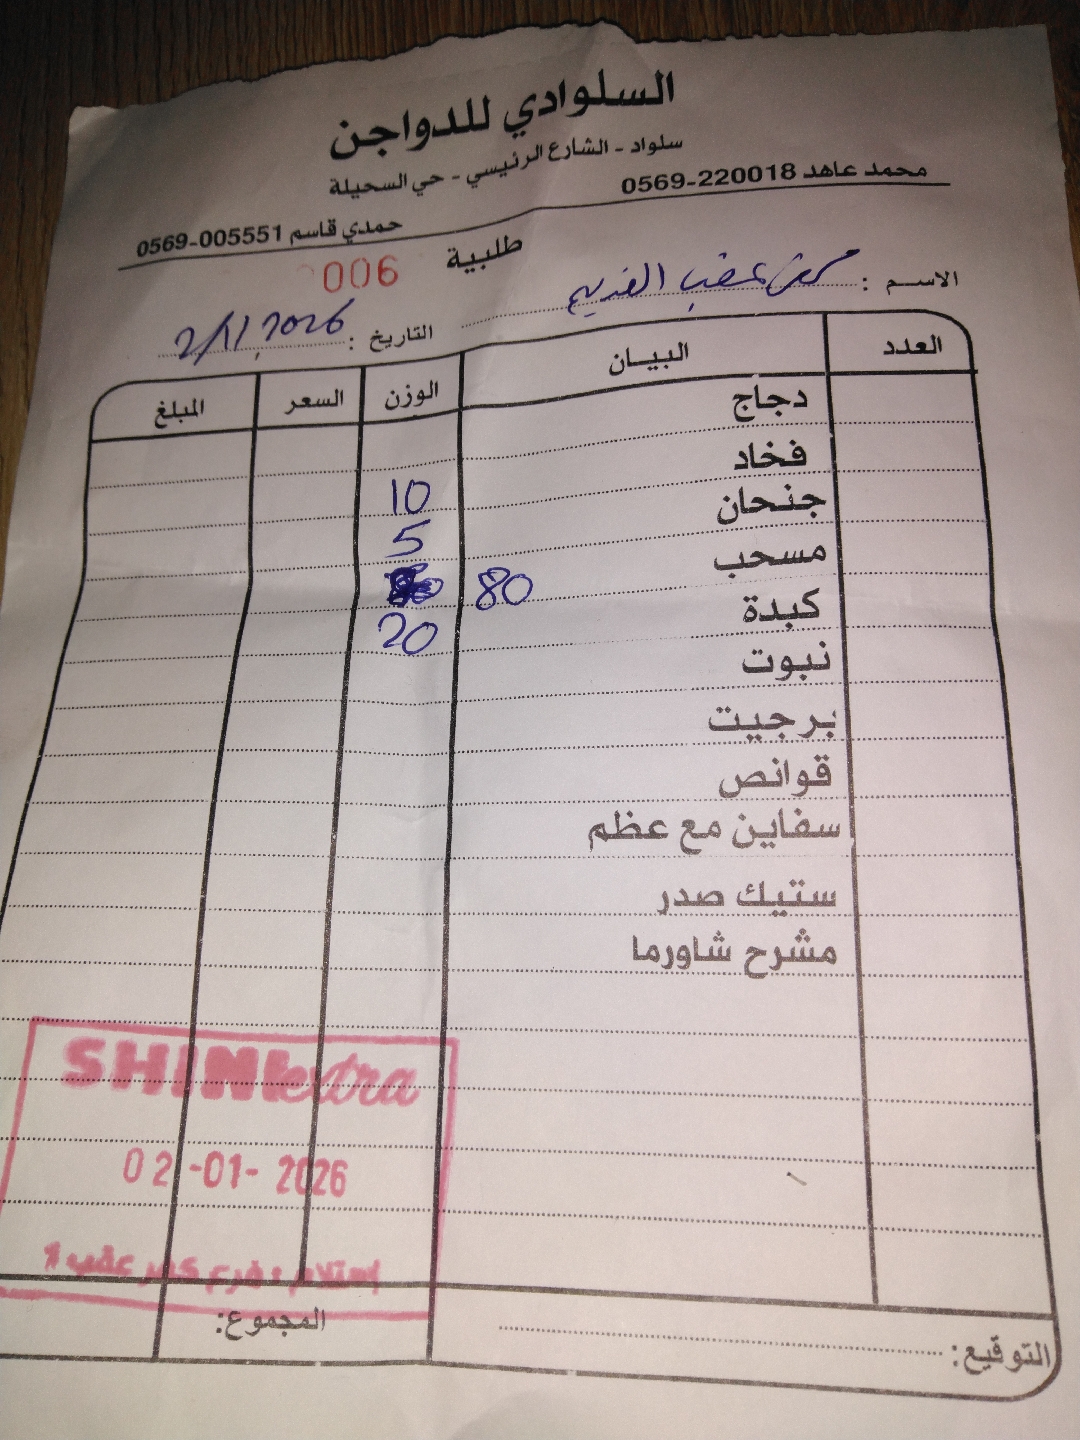 السلوادي للدواجن
سلواد - الشارع الرئيسي - حي السحيلة
محمد عاهد 0569-220018
حمدي قاسم 0569-005551
طلبية 006
الاسم : عقب القديم
التاريخ : 2/1/2026
العدد البيـان الوزن السعر المبلغ
دجاج
فخاد
جنحان 10
مسحب 5
كبدة 80
نبوت 20
برجيت
قوانص
سفاين مع عظم
ستيك صدر
مشرح شاورما
SHINI extra
02-01-2026
إستلام : فرع كفر عقب 1
المجموع:
التوقيع: